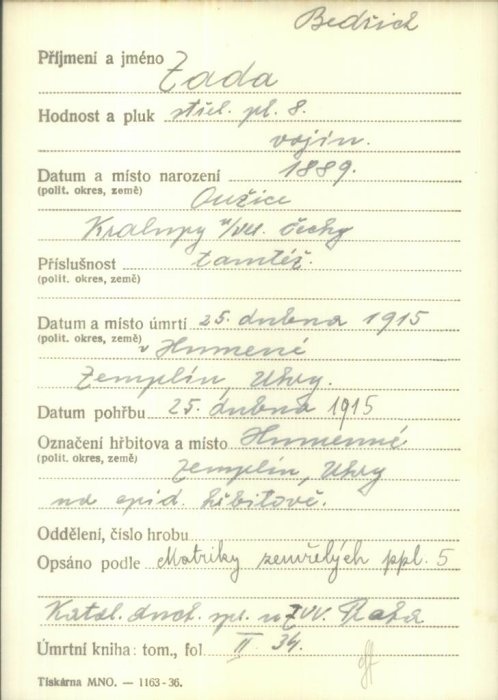 Bedřich
Příjmení a jméno Zada
Hodnost a pluk střel. pl. 8.
vojín.
Datum a místo narození 1889.
(polit. okres, země) Oužice
Kralupy n/Vlt. Čechy
Příslušnost tamtéž.
(polit. okres, země)
Datum a místo úmrtí 25. dubna 1915
(polit. okres, země) v Humenné
Zemplín, Uhry.
Datum pohřbu 25. dubna 1915
Označení hřbitova a místo Humenné
(polit. okres, země) Zemplín, Uhry
na epid. hřbitově.
Oddělení, číslo hrobu
Opsáno podle Matriky zemřelých ppl. 5
Katol. duch. spr. u ZVV. Praha
Úmrtní kniha: tom., fol II 34.
Tiskárna MNO. — 1163-36.